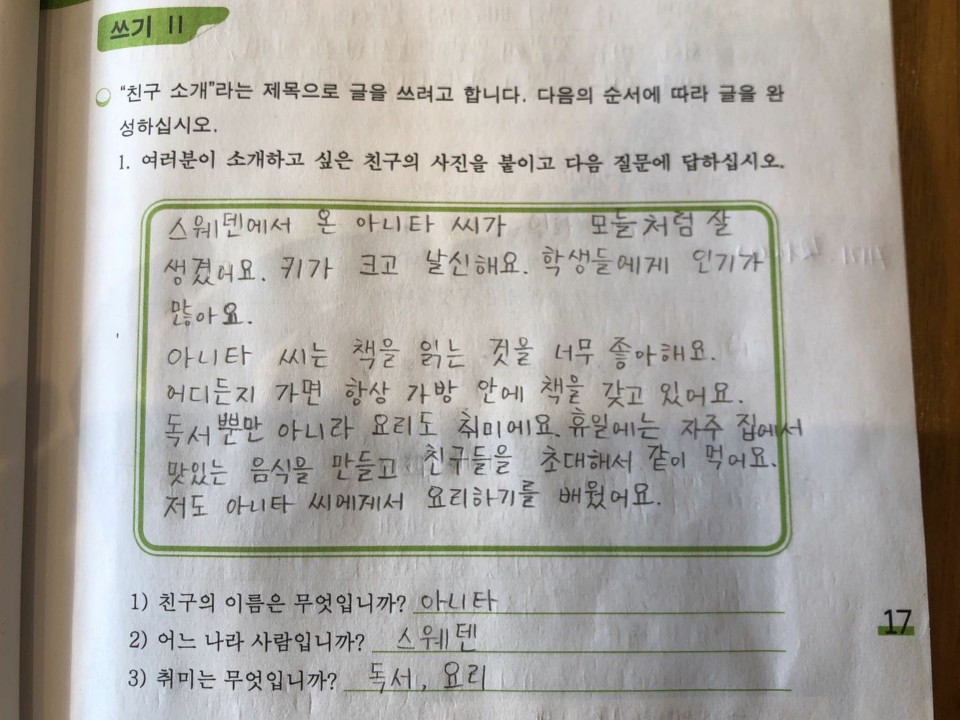 쓰기 II
"친구 소개"라는 제목으로 글을 쓰려고 합니다. 다음의 순서에 따라 글을 완
성하십시오.
1. 여러분이 소개하고 싶은 친구의 사진을 붙이고 다음 질문에 답하십시오.
스웨덴에서 온 아니타 씨가 모들처럼 잘
생겼어요. 키가 크고 날신해요. 학생들에게 인기가
많아요.
아니타 씨는 책을 읽는 것을 너무 좋아해요.
어디든지 가면 항상 가방 안에 책을 갖고 있어요.
독서뿐만 아니라 요리도 취미에요. 휴일에는 자주 집에서
맛있는 음식을 만들고 친구들을 초대해서 같이 먹어요.
저도 아니타 씨에게서 요리하기를 배웠어요.
1) 친구의 이름은 무엇입니까? 아니타
2) 어느 나라 사람입니까? 스웨덴
3) 취미는 무엇입니까? 독서, 요리
17